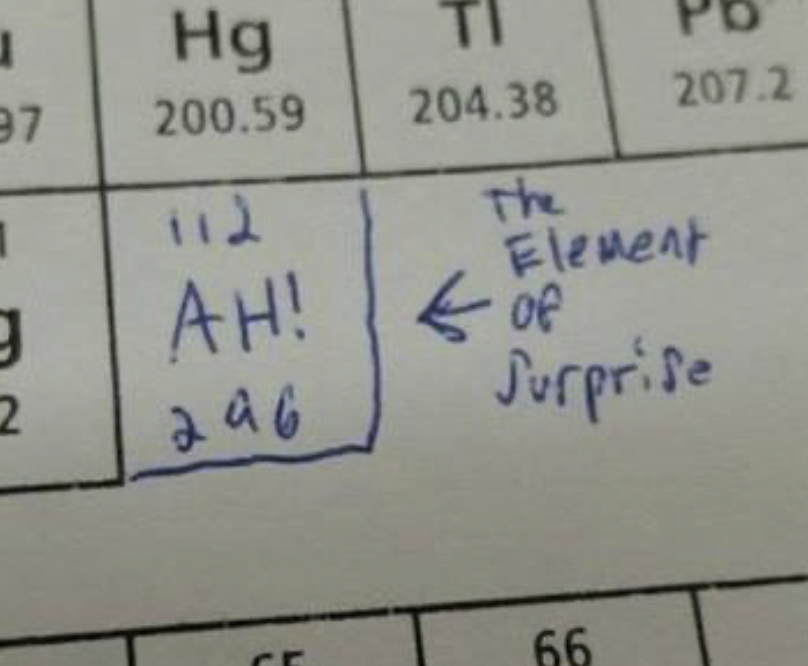 Hg Tl Pb
97 200.59 204.38 207.2
112
AH!
296
The
Element
OF
Surprise
g
2
65 66